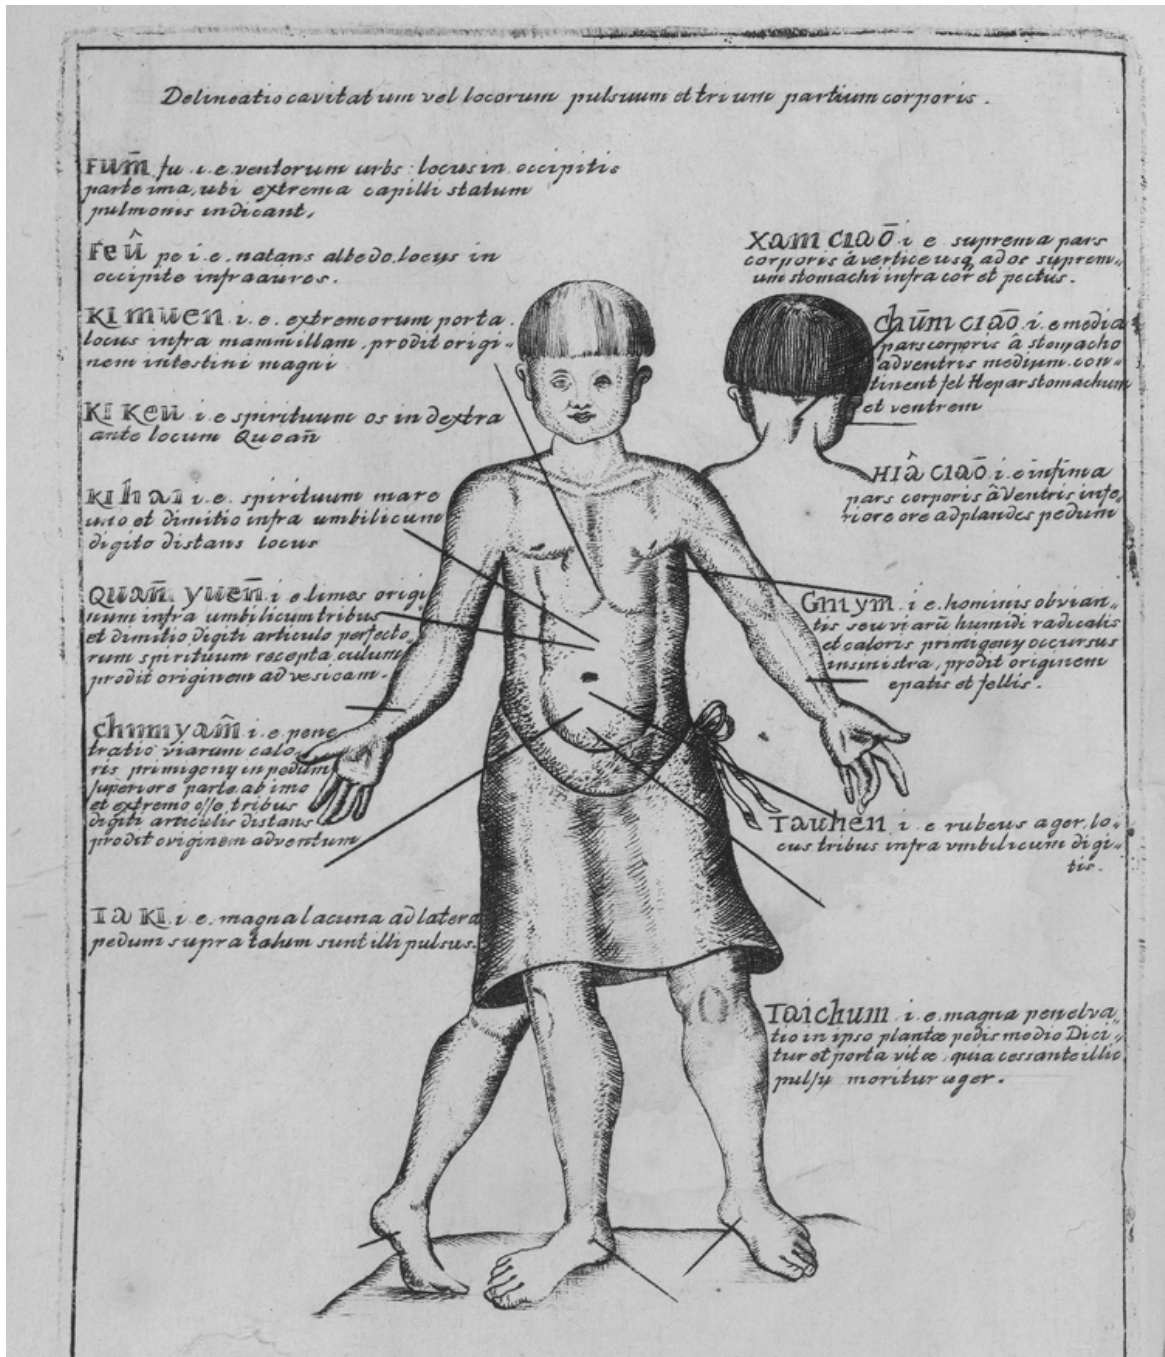 Delineatio cavitatum vel locorum pulsuum et trium partium corporis.
Fum̄ fu i.e. ventorum urbs: locus in occipitis
parte ima, ubi extrema capilli statum
pulmonis indicant,
Feû pe i.e. natans albedo. locus in
occipite infra aures.
Ki muen i.e. extremorum porta.
locus infra mammillam, prodit origi-
nem intestini magni
Ki keu i.e. spirituum os in dextra
ante locum Quoan̄
Ki hai i.e. spirituum mare
uno et dimitio infra umbilicum
digito distans locus
Quan̄ yuen̄ i.e. limes origi
num infra umbilicum tribus
et dimitio digiti articulo perfecto
rum spirituum receptaculum
prodit originem ad vesicam.
chumyam̄ i.e. pene
tratio viarum calo
ris primigeny in pedum
superiore parte. ab imo
et extremo osse tribus
digiti articulis distans
prodit originem ad ventum
Ta ki. i.e. magna lacuna ad latera
pedum supra talum sunt illi pulsus.
Xam ciaō i e suprema pars
corporis â vertice usq ad os suprem-
um stomachi infra cor et pectus.
chūm ciaō. i. e media
pars corporis â stomacho
ad ventris medium. con-
tinent fel Hepar stomachum
et ventrem
Hiâ ciaō. i. e infima
pars corporis â Ventris infe-
riore ore ad plandes pedum
Gniym. i e. hominis obvian-
tis seu viarū humidi radicalis
et caloris primigeny occursus
in sinistra, prodit originem
epatis et fellis.
Tauhen i. e rubeus ager. lo-
cus tribus infra vmbilicum digi-
tis.
Taichum i. e. magna penelva
tio in ipso plantæ pedis medio Dici-
tur et porta vitæ, quia cessante illic
pulsu moritur æger.